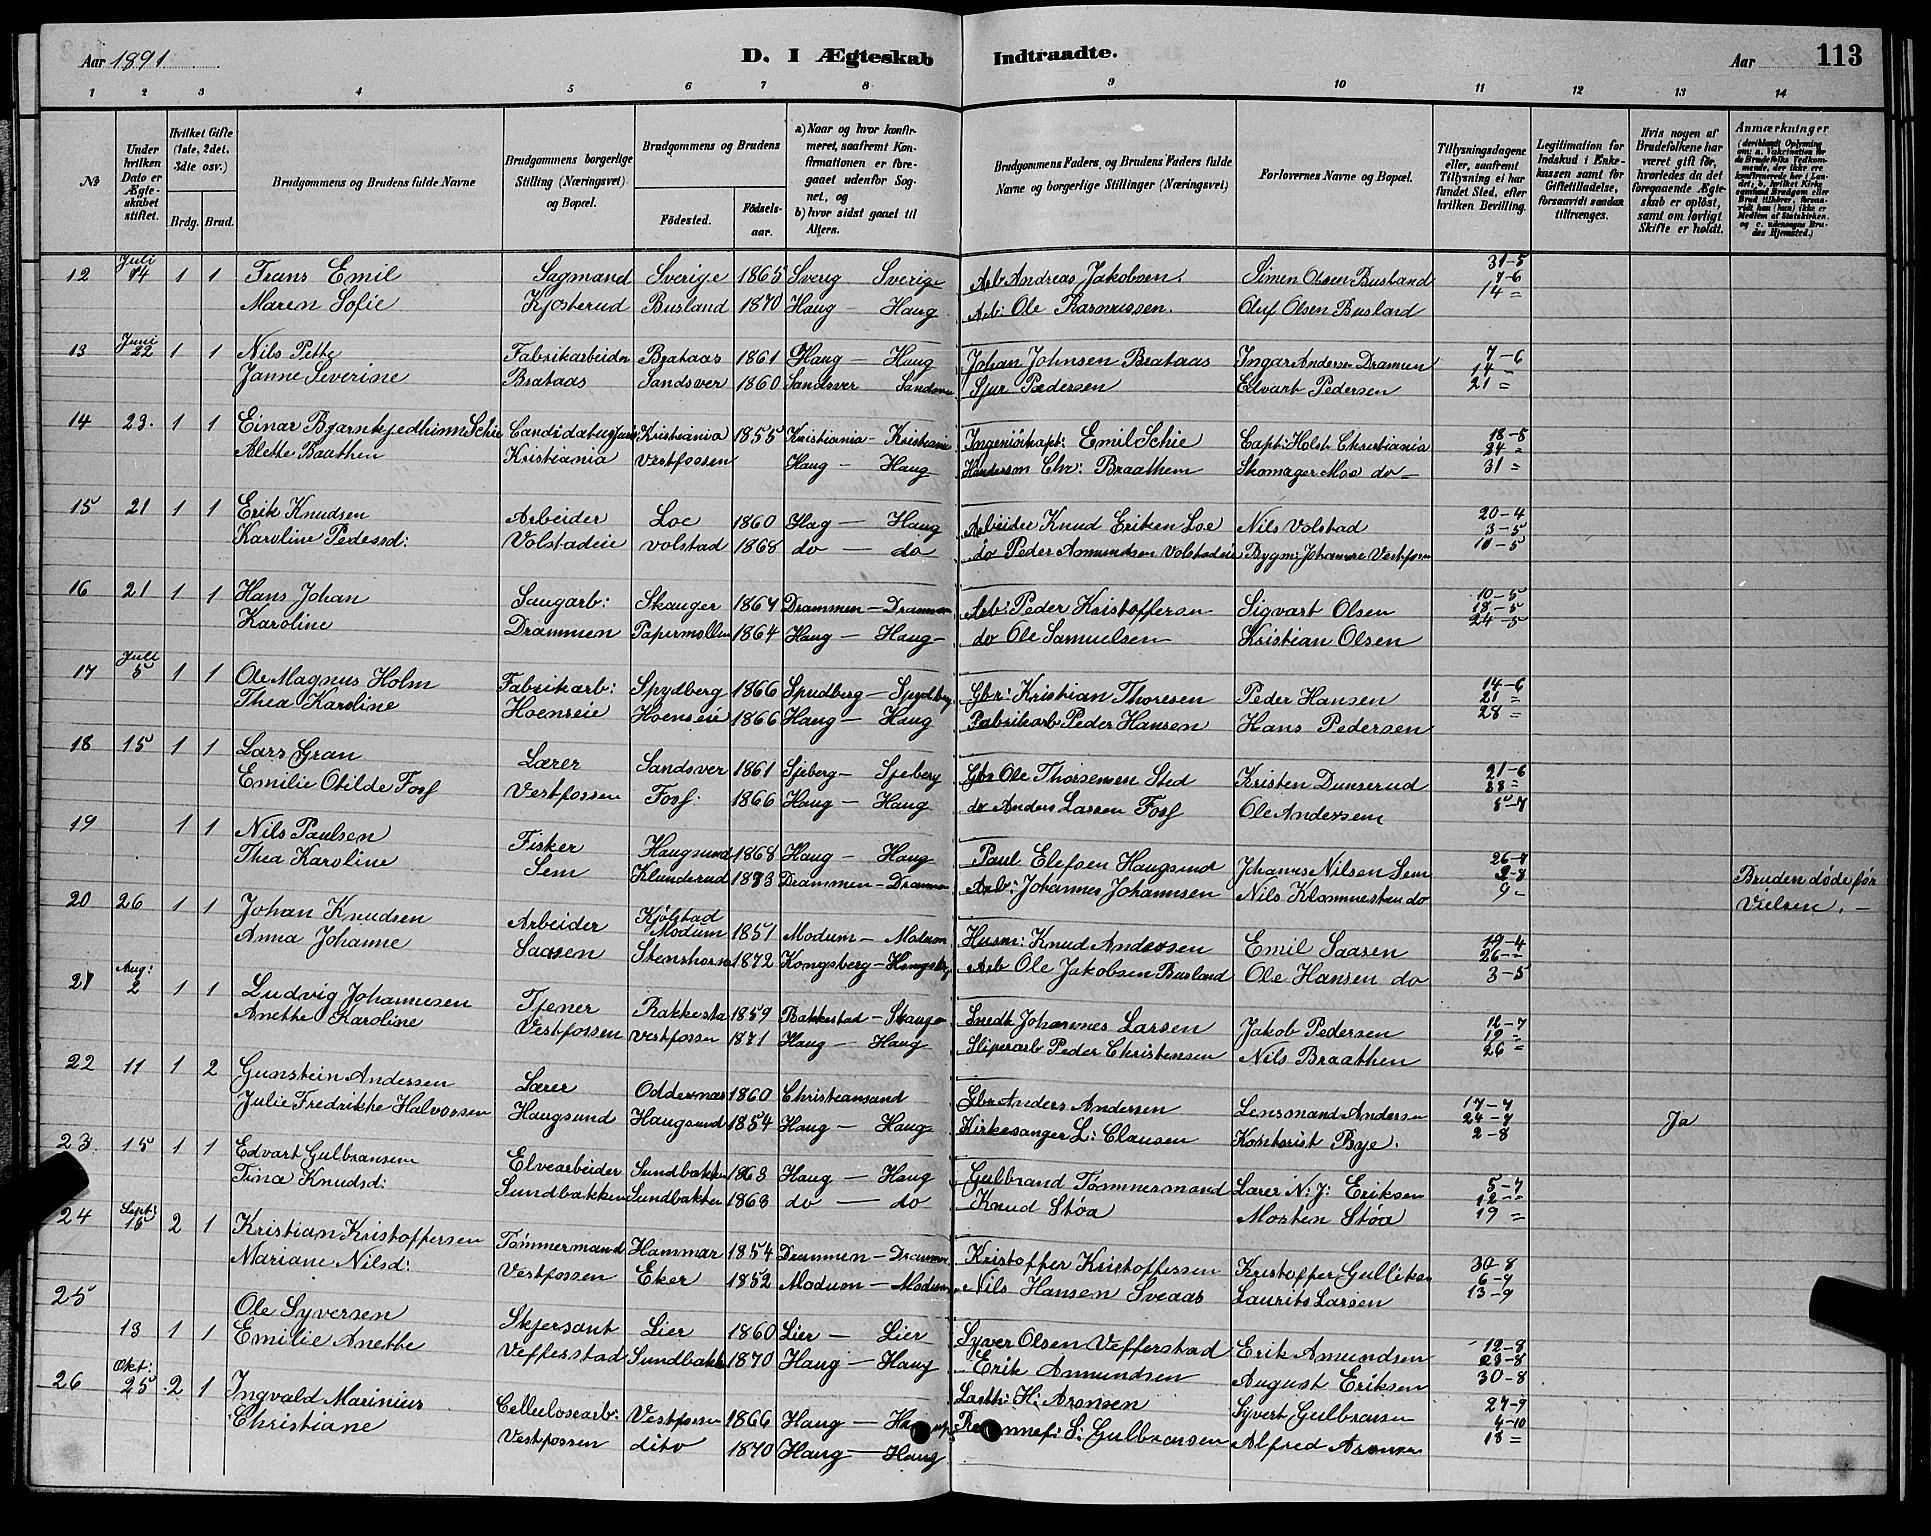 Aar 1891
D. I Ægteskab Indtraadte.
Aar 113
1 2 3 4 5 6 7 8 9 10 11 12 13 14
№
Under hvilken Dato er Ægteskabet stiftet.
Hvilket Gifte (1ste, 2det, 3die osv.)
Brdg. Brud.
Brudgommens og Brudens fulde Navne
Brudgommens borgerlige Stilling (Næringsvei) og Bopæl.
Brudgommens og Brudens
Fødested.
Fødselsaar.
a) Naar og hvor konfirmeret, saafremt Konfirmationen er foregaaet udenfor Sognet, og
b) hvor sidst gaaet til Alters.
Brudgommens Faders, og Brudens Faders fulde Navne og borgerlige Stillinger (Næringsvei)
Forlovernes Navne og Bopæl.
Tillysningsdagene eller, saafremt Tillysning ei har fundet Sted, efter hvilken Bevilling.
Legitimation for Indskud i Enkekassen samt for Giftetilladelse, forsaavidt saadan tiltrænges.
Hvis nogen af Brudefolkene har været gift før, hvorledes da det foregaaende Ægteskab er opløst, samt om lovligt Skifte er holdt.
Anmærkninger
12 Juli 14 1 1 Frans Emil Sagmand Sverige 1865 Sverig Sverige Arb Andreas Jakobsen. Simen Olsen Busland 31-5 7-6
Maren Sofie Kjosterud Busland 1870 Haug — Haug Arb: Ole Rasmussen. Oluf Olsen Busland 14 =
13 Juni 22 1 1 Nils Pette Fabrikarbeider Brataas 1861 Haug — Haug Johan Johnsen Brataas Ingar Andersen Drammen 7-6 14 -
Janne Severine Brataas Sandsver 1860 Sandsver Sandsver Sjur Pedersen Edvart Pedersen 21 =
14 23. 1 1 Einar Bjarnhjedhinn Schie Kristiania 1855 Kristiania - Kristiania Ingeniørkapt: Emil Schie Capt: Holst Christiania 18-5 24 =
Alette Baathen Kristiania Vestfossen Haug — Haug Chr: Braathem Skomager Moe do - 31 =
15 21 1 1 Erik Knudsen Arbeider Loe 1860 Hag — Haug Arbeider Knud Eriken Loe Nils Volstad 20-4 3-5
Karoline Pedessd: Volstadeie Volstad 1868 do — do do Peder Asmundsen Volstadeie Bygm: Johannes Vestfossen 10-5
16 21 1 1 Hans Johan Saugarb: Skauger 1864 Drammen - Drammen Arb: Peder Kristoffersen Sigvart Olsen 10-5 18-5
Karoline Drammen Papirmøllen 1864 Haug — Haug - do Ole Samuelsen Kristian Olsen 24-5
17 Juli 5 1 1 Ole Magnus Holm Fabrikarb: Spydberg 1866 Spudberg - Spydberg Gbr: Kristian Thoresen Peder Hansen 14-6 21 =
Thea Karoline Hoenseie Hoenseie 1866 Haug — Haug Fabrikarb Peder Hansen Hans Pedersen 28 =
18 15 1 1 Lars Gran Lærer Sandsver 1861 Sjeberg - Sjeberg Gbr Ole Thorsensen Sted Kristen Dunserud 21-6 28 =
Emilie Otilde Foss Vestfossen Foss: 1866 Haug — Haug do Anders Larsen Foss Ole Andersen 5-7
19 1 1 Nils Paulsen Fisker Haugsund 1868 Haug — Haug Paul Elefsen Haugsund Johannes Nilsen Sem 26-7 2-8
Thea Karoline Sem Klunderud 1873 Drammen - Drammen Arb: Johannes Johannsen Nils Klommesten do 9 - Bruden døde før Vielsen. —
20 26 1 1 Johan Knudsen Arbeider Kjølstad Modum 1851 Modum - Modum Husm: Knud Andersen Emil Saasen 19-4 26 =
Anna Johanne Saasen Stenshorn 1872 Kongsberg - Kongsberg Arb Ole Jakobsen Busland Ole Hansen do 3-5
21 Aug: 2 1 1 Ludvig Johannesen Tjener Rakkesta 1859 Rakkestad - Skauger Snedk Johannes Larsen Jakob Pedersen 12-7 19 =
Anette Karoline Vestfossen Vestfossen 1871 Haug — Haug Sliperarb Peder Christensen Nils Braathen 26 =
22 11 1 2 Gunstein Andersen Lærer Oddernæs 1860 Christiansand Gbr Anders Andersen Lensmand Andersen 17-7 24-7
Julie Fredrikke Halvorsen Haugsund Haugsund 1854 Haug — Haug Kirkesanger L: Clausen Kontorist Bye. 2-8 Ja
23 15 1 1 Edvart Gulbransen Elvearbeider Sundbakken 1863 Haug — Haug Gulbrand Tømmermand Lærer N: J: Eriksen 5-7 12 =
Tina Knudsd: Sundbakken Sundbakken 1863 do — do Knud Støa Morten Støa 19 =
24 Sept: 15 2 1 Kristian Kristoffersen Tømmermand Hammar 1854 Drammen - Drammen Kristoffer Kristoffersen Kristoffer Gulliksen 30-8 6-9
Mariane Nilsd: Vestfossen Eker 1852 Modum - Modum Nils Hansen Sveaas Laurits Larsen 13-9
25 Ole Syversen Skjersant Lier 1860 Lier — Lier Syver Olsen Vefferstad Erik Amundsen 12-8 23-8
13 1 1 Emilie Anette Vefferstad Sundbakk 1870 Haug — Haug Erik Amundsen August Eriksen 30-8
26 Okt: 25 2 1 Ingvald Marinius Cellulosearb: Vestfossen 1866 Haug — Haug H: Aronsen Syvert Gulbransen 27-9 4-10
Christiane Vestfossen dito 1870 Haug — Haug S: Gulbransen Alfred Aronsen 18 =